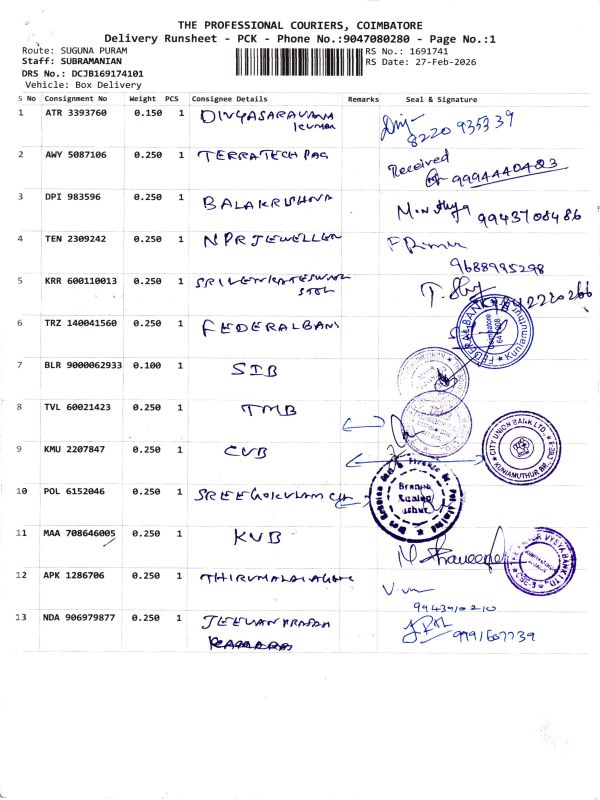 THE PROFESSIONAL COURIERS, COIMBATORE
Delivery Runsheet - PCK - Phone No.:9047080280 - Page No.:1
Route: SUGUNA PURAM
RS No.: 1691741
Staff: SUBRAMANIAN
RS Date: 27-Feb-2026
DRS No.: DCJB169174101
Vehicle: Box Delivery
S No Consignment No Weight PCS Consignee Details Remarks Seal & Signature
1 ATR 3393760 0.150 1 DIVYASARAVANA
KUMAR
8220 935339
2 AWY 5087106 0.250 1 TERRATECH PAC
Received
9994440483
3 DPI 983596 0.250 1 BALAKRISHNA
9943708486
4 TEN 2309242 0.250 1 NPR JEWELLER
9688995298
5 KRR 600110013 0.250 1 SRIVENKATESWAR
6 TRZ 140041560 0.250 1 FEDERALBANK
FEDERAL BANK Kuniamuthur
Coimbatore
641008
7 BLR 9000062933 0.100 1 SIB
8 TVL 60021423 0.250 1 TMB
9 KMU 2207847 0.250 1 CUB
CITY UNION BANK LTD.
KUNIAMUTHUR BR.
10 POL 6152046 0.250 1 SREEGOKULAM CH
Branch
11 MAA 708646005 0.250 1 KVB
VYSYA BANK LTD
12 APK 1286706 0.250 1 THIRUMALAI
9943910210
13 NDA 906979877 0.250 1 JEEVAN PRASAD
9991607739